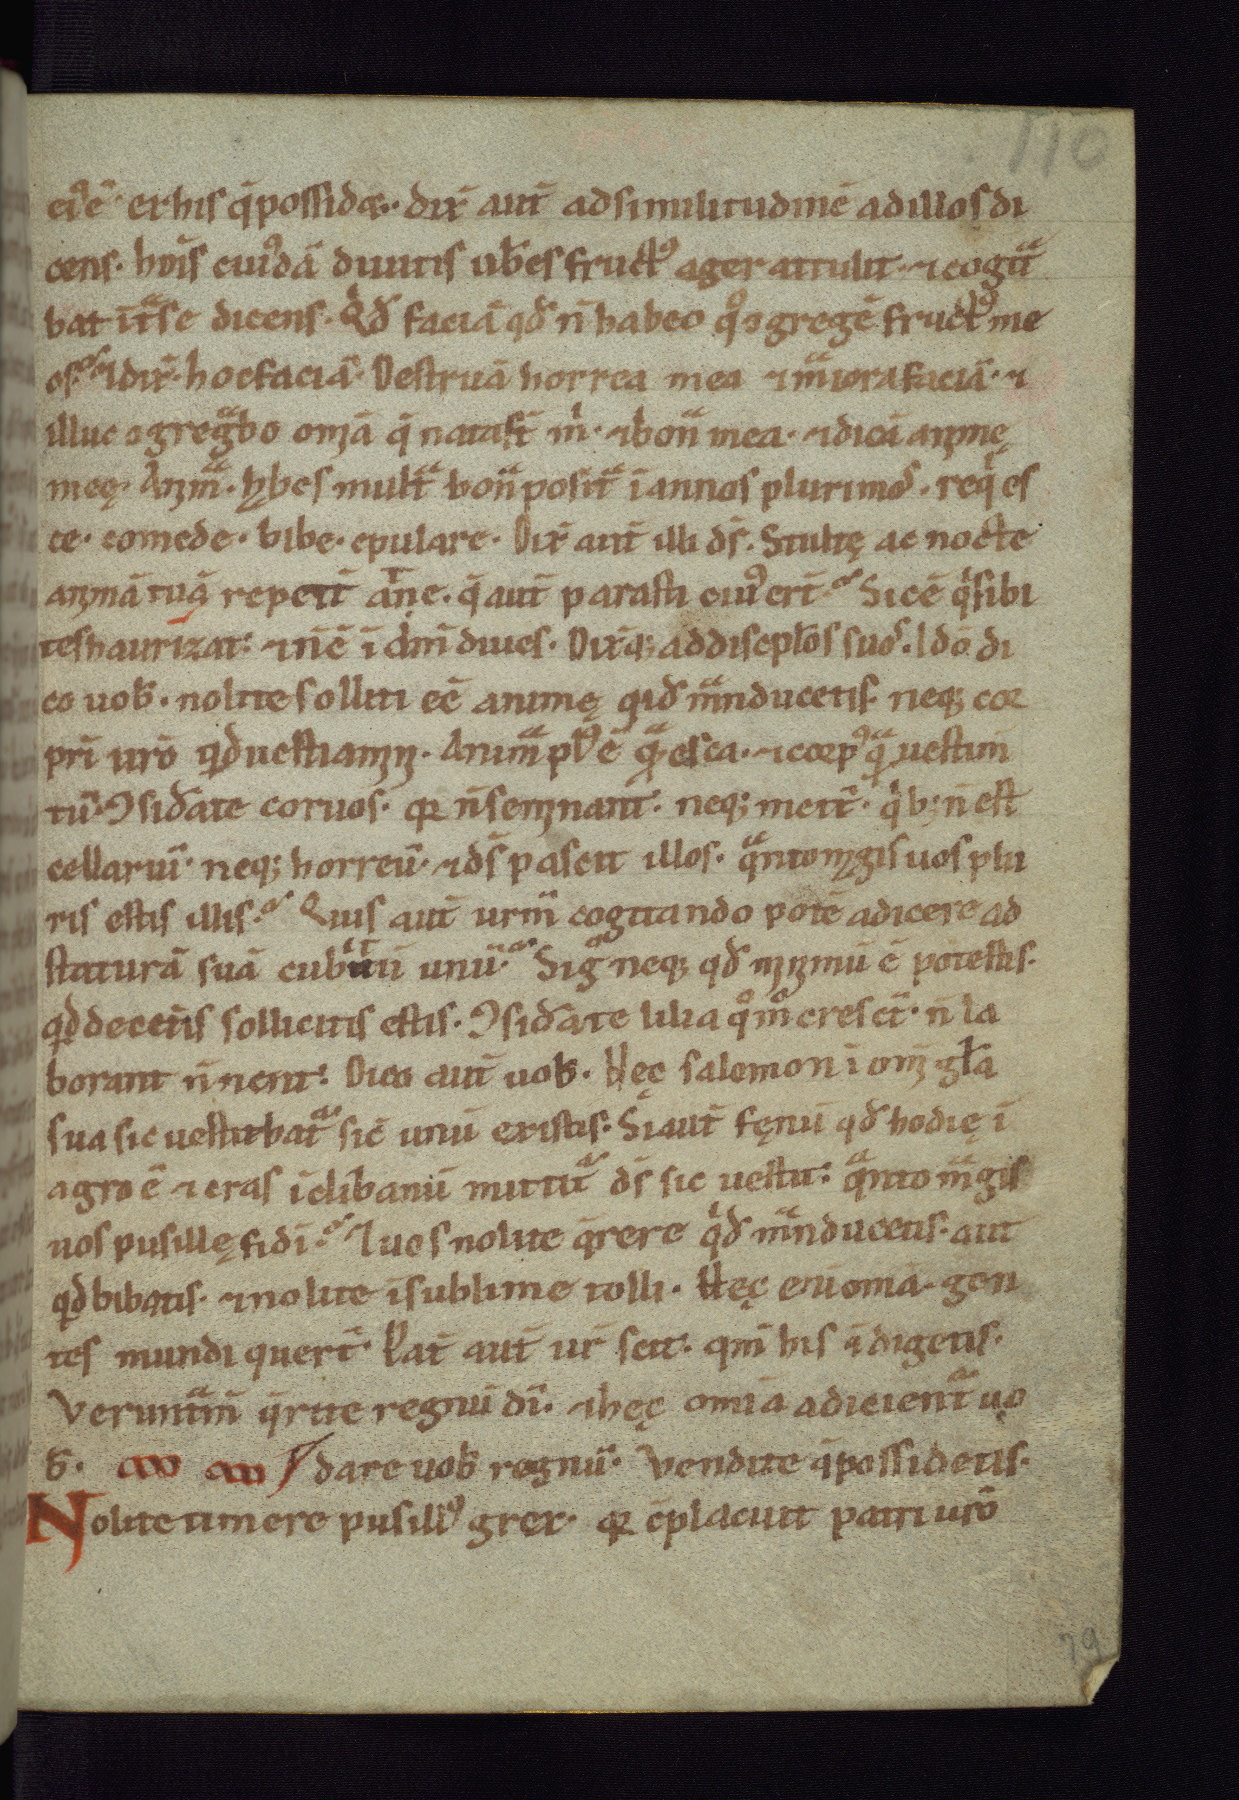 110
ei᷒ ē ex his q̄ possidꝫ. dix̄ aut̄ ad similitudinē ad illos di
cens. hōis cuiꝰdā diuitis ub̄es fructꝰ ager attulit. ⁊ cogitͣ
bat īt͛ se dicens. Qͥd faciā qd̄ n̄ habeo qͦ ↄgregē fructꝰ me
os. ⁊ dix̄. hoc faciā. Destruā horrea mea ⁊ mͣiora faciā. ⁊
illuc ↄgregͣbo om̄ia q̄ nata st̄ m̍. ⁊ bonͣ mea. ⁊ dicā anime
meę. Animͣ. hͣbes multͣ bonͣ positͣ ī annos plurimos. reqͥes
ce. comede. bibe. epulare. Dix̄ aut̄ illi ds̄. Stultę ac nocte
animā tuā repetīt a te. q̄ aut̄ parasti cuiꝰ er̄t. Sic ē qͥ sibi
teshaurizat. ⁊ n̄ ē ī dm̄ diues. Dixitqꝫ ad discip̄los suos. Ido di
co uob̄. nolite solliti eē animę qid̄ mͣnducetis. neqꝫ cor
pri ur̄o qͥd uestiamī. Animͣ plꝰ ē qͣ̄ esca. ⁊ corpꝰ qͣ̄ uestim̄
tū. Ↄsid̄ate coruos. qꝛ n̄ seminant. neqꝫ metī. qͥbꝫ n̄ est
cellariū. neqꝫ horreū. ⁊ ds̄ pascit illos. qͣnto mͣgis uos plu
ris estis illis. Quis aut̄ urm̄ cogitando potē adicere ad
staturā suā cubitū unū. Si g̊ neqꝫ qd̄ minimū ē potestis.
qͥd de cet͛is solliciti estis. Ↄsid̄ate lilia qͦm̊ crescı̄t. n̄ la
borant n̄ nent. Dico aut̄ uob̄. Nec salomon ī om̄i gl̄a
sua sic uestiebatͣ sic̄ unū ex istis. Si aut̄ fęnū qd̄ hodię ī
agro ē ⁊ cras ī clibanū mittitͣ ds̄ sic uestit. qͣnto mͣgis
uos pusillę fidi. ⁊ uos nolite q̄rere qͥd mͣnducetis. aut
qͥd bibatis. ⁊ nolite ī sublime tolli. Hęc eni om̄a gen
tes mundi quer̄t. Pat̄ aut̄ ur̄ scit. qm̄ his īdigetis.
Veruntͣm̄ q̄rite regnū dī. ⁊ hęc omīa adicientͣ uo
b̄. dare uob̄ regnū. Vendite q̄ possidetis.
Nolite timere pusillꝰ grex. qꝛ ↄplacuit patri ur̄o
79